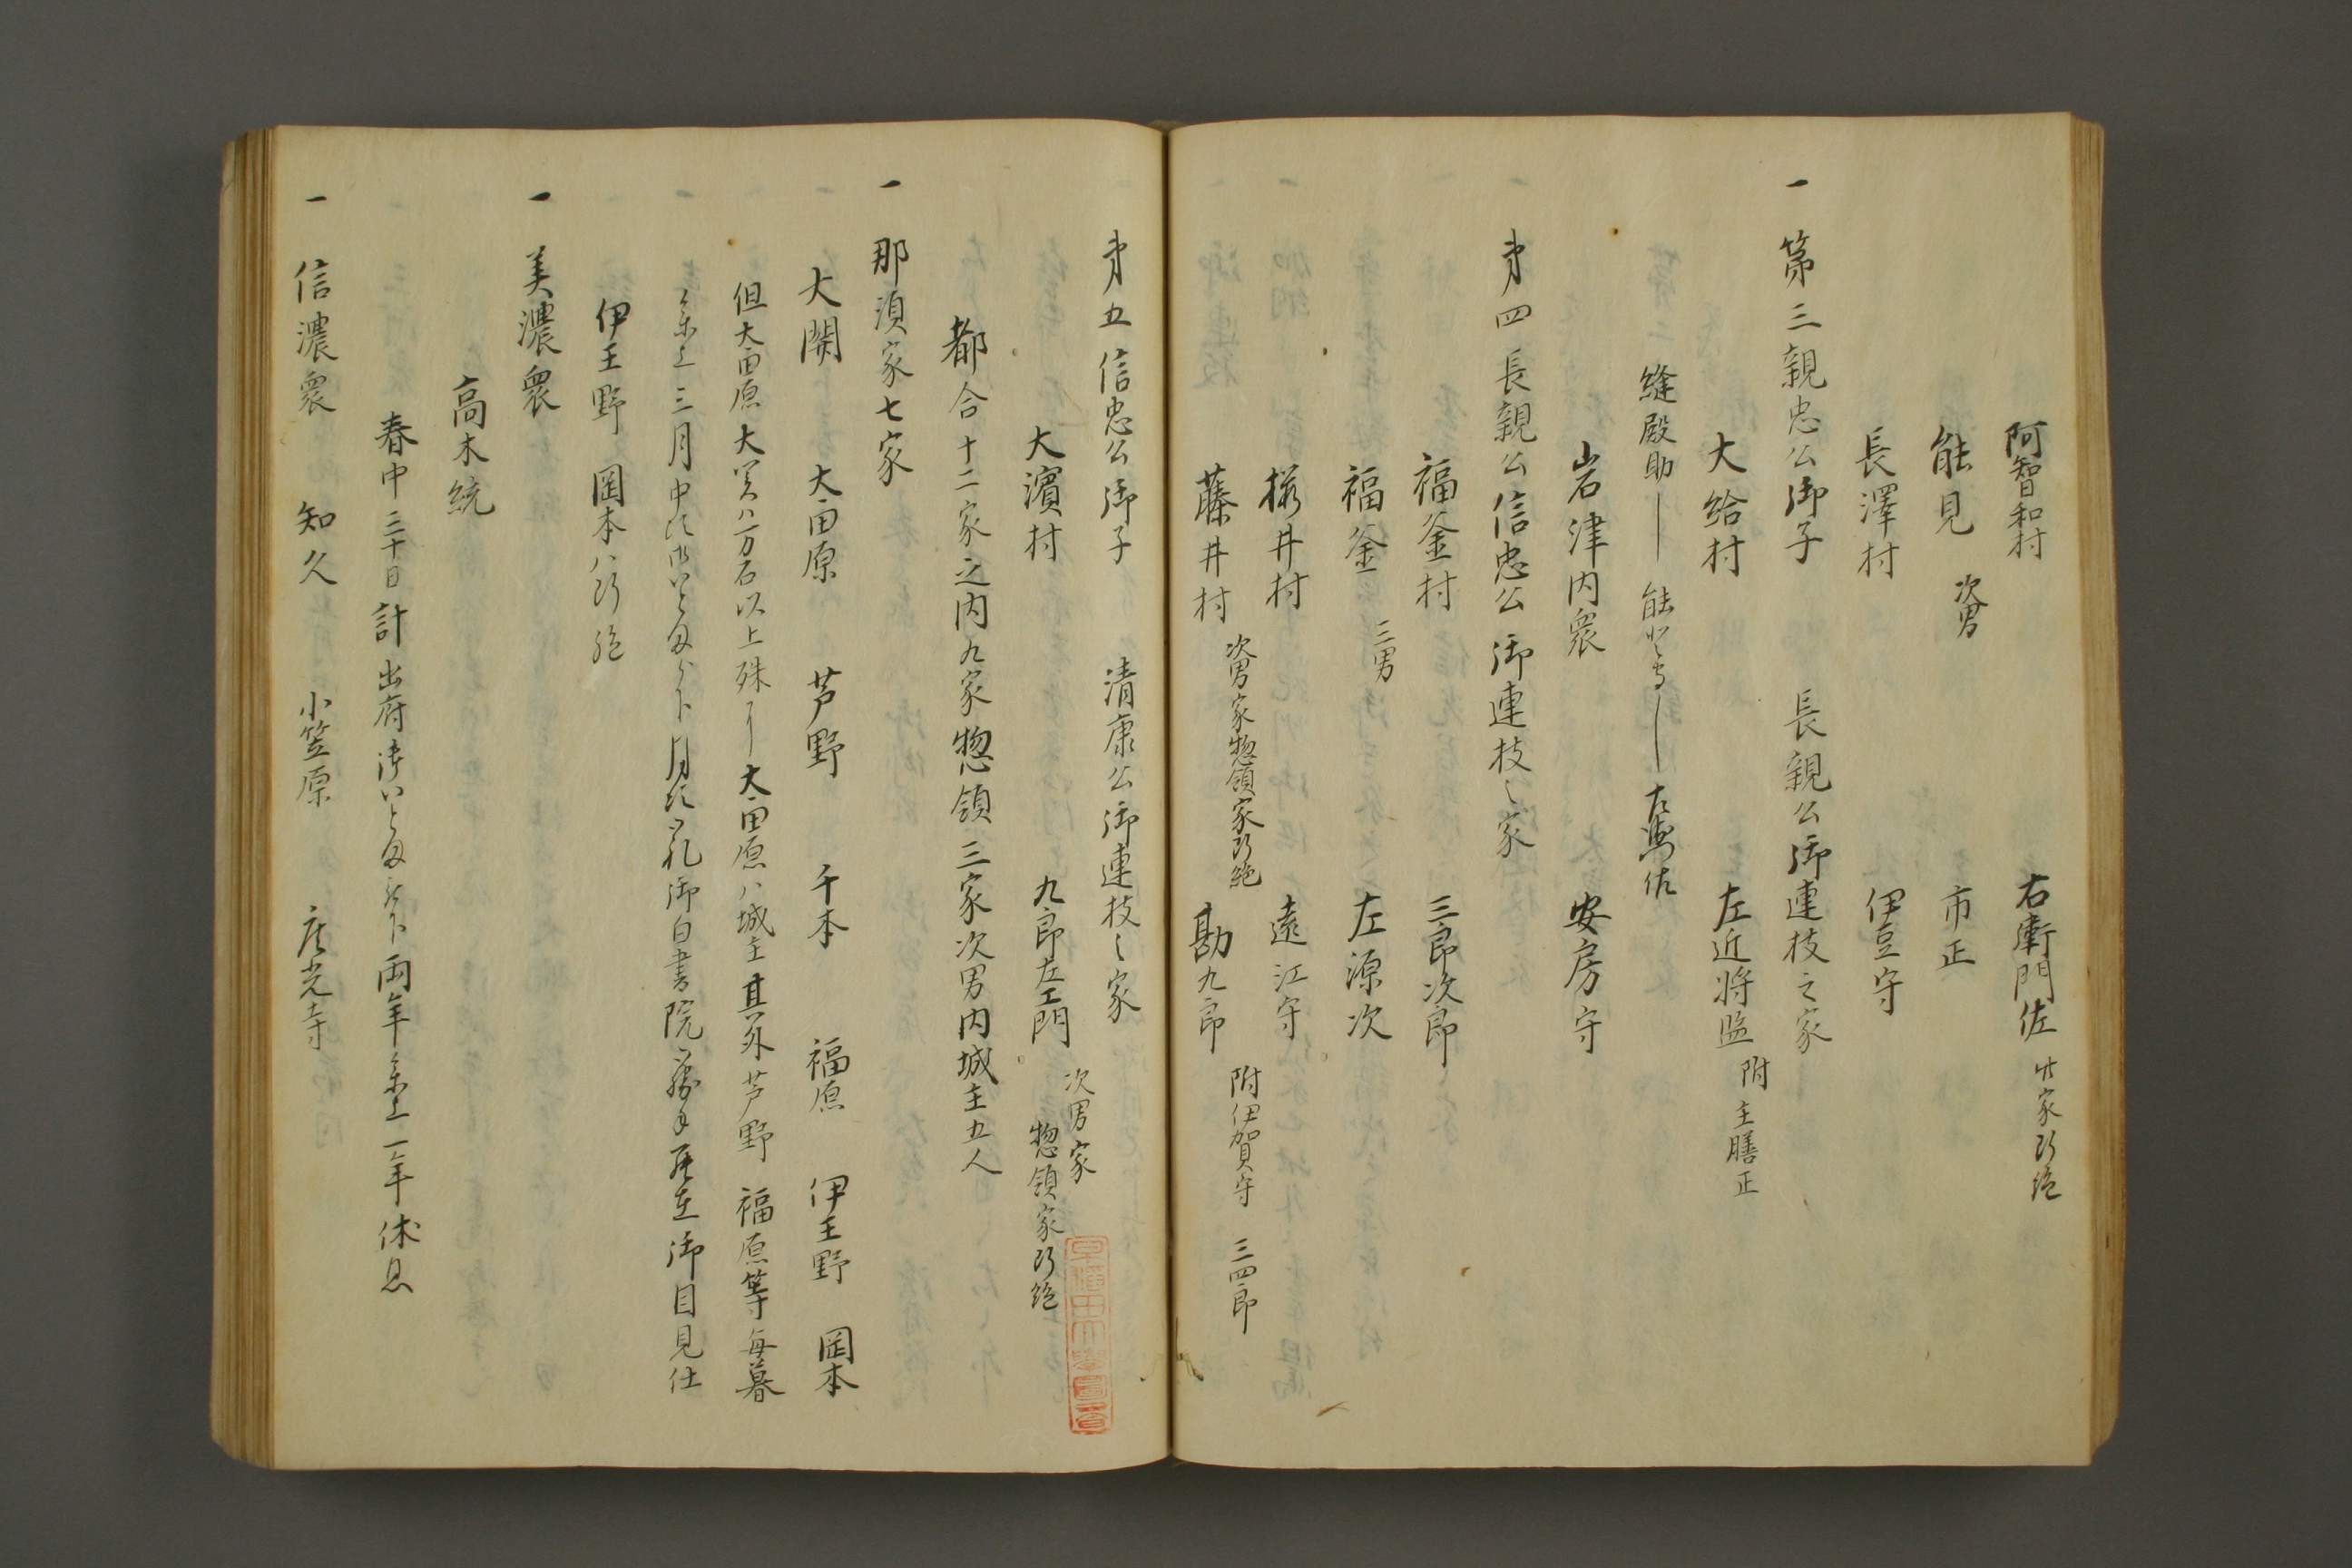 阿智和村 右衛門佐 此家断絶
能見 次男 市正
長澤村 伊豆守
一 第三親忠公御子 長親公御連枝之家
大給村 左近将監 附 主膳正
縫殿助
岩津内衆 安房守
才四 長親公信忠公御連枝之家
福釜村 三郎次郎
福釜 三男 左源次
桜井村 遠江守
藤井村 次男家惣領家断絶 勘九郎 附伊賀守 三四郎
才五信忠公御子 清康公御連枝之家
大濱村 九郎左エ門 次男家 惣領家断絶
都合十二家之内九家惣領三家次男内城主五人
一 那須家七家
大関 大田原 芦野 千本 福原 伊王野 岡本
但大田原大関ハ万石以上殊ニ大田原ハ城主其外芦野福原等毎暮
三月中 御白書院 御目見仕
伊王野 岡本ハ断絶
一 美濃衆
高木統
春中三十日計出府 両年 一年休息
一 信濃衆 知久 小笠原 座光寺
早稲田大学図書